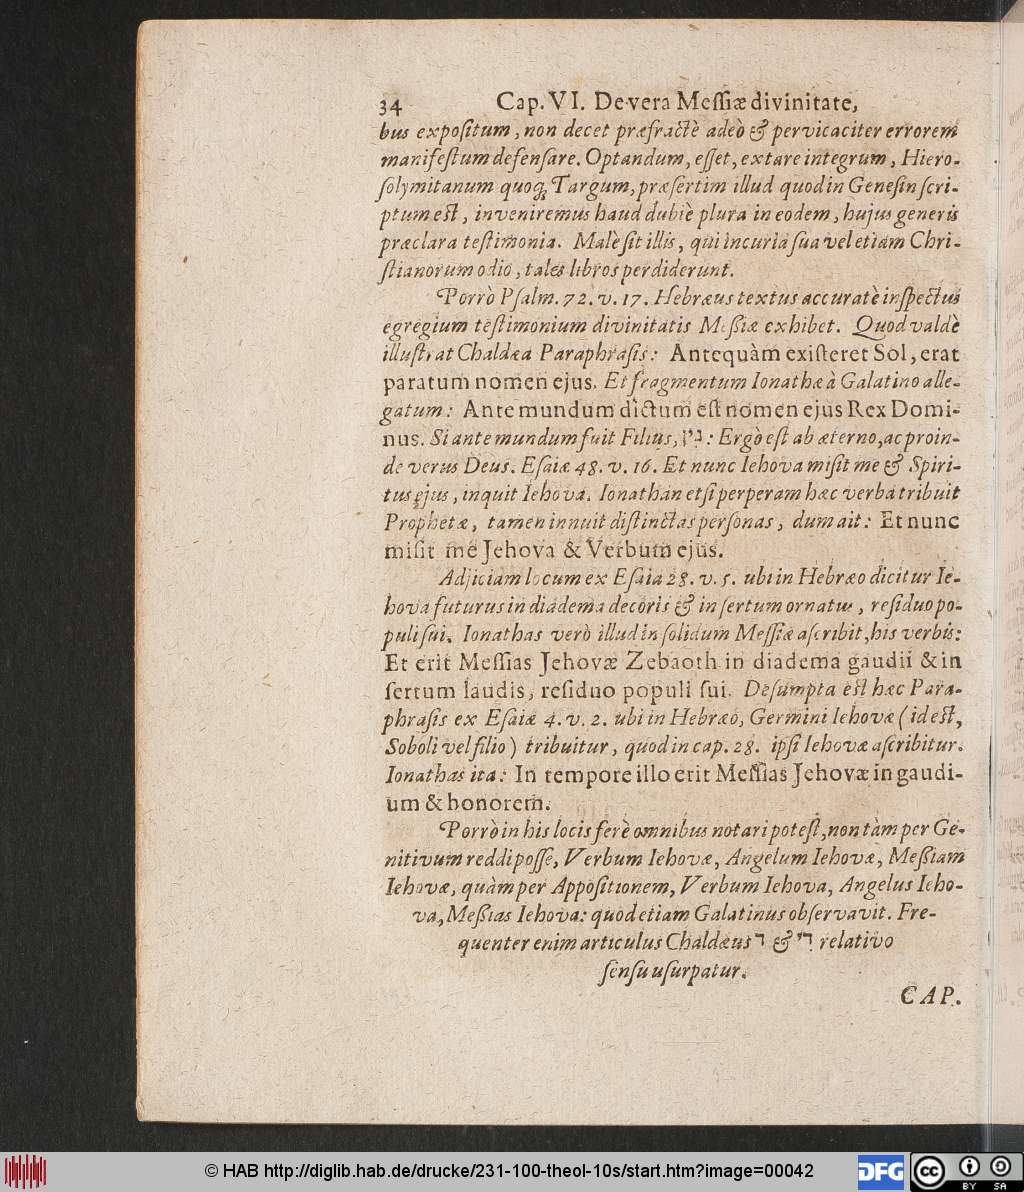 34 Cap. VI. De vera Meſſiæ divinitate,
bus expoſitum, non decet præfractè adeò & pervicaciter errorem
manifeſtum defenſare. Optandum, eſſet, extare integrum, Hiero-
ſolymitanum quoq; Targum, præſertim illud quod in Geneſin ſcri-
ptum eſt, inveniremus haud dubiè plura in eodem, hujus generis
præclara teſtimonia. Malè ſit illis, qui incuria ſua vel etiam Chri-
ſtianorum odio, tales libros perdiderunt.
Porrò Pſalm. 72. v. 17. Hebræus textus accuratè inſpectus
egregium teſtimonium divinitatis Meßiæ exhibet. Quod valdè
illuſtrat Chaldæa Paraphraſis: Antequàm exiſteret Sol, erat
paratum nomen ejus. Et fragmentum Ionathæ à Galatino alle-
gatum: Ante mundum dictum eſt nomen ejus Rex Domi-
nus. Si ante mundum fuit Filius, נין: Ergò eſt ab æterno, ac proin-
de verus Deus. Eſaiæ 48. v. 16. Et nunc Iehova miſit me & Spiri-
tus ejus, inquit Iehova. Ionathan etſi perperam hæc verba tribuit
Prophetæ, tamen innuit diſtinctas perſonas, dum ait: Et nunc
miſit me Jehova & Verbum ejus.
Adjiciam locum ex Eſaia 28. v. 5. ubi in Hebræo dicitur Ie-
hova futurus in diadema decoris & in ſertum ornatus, reſiduo po-
puli ſui. Ionathas verò illud in ſolidum Meſſiæ aſcribit, his verbis:
Et erit Meſſias Jehovæ Zebaoth in diadema gaudii & in
ſertum laudis, reſiduo populi ſui. Deſumpta eſt hæc Para-
phraſis ex Eſaiæ 4. v. 2. ubi in Hebræo, Germini Iehovæ (id eſt,
Soboli vel filio) tribuitur, quod in cap. 28. ipſi Iehovæ aſcribitur.
Ionathas ita: In tempore illo erit Meſſias Jehovæ in gaudi-
um & honorem.
Porrò in his locis ferè omnibus notari poteſt, non tàm per Ge-
nitivum reddi poſſe, Verbum Iehovæ, Angelum Iehovæ, Meßiam
Iehovæ, quàm per Appoſitionem, Verbum Iehova, Angelus Ieho-
va, Meßias Iehova: quod etiam Galatinus obſervavit. Fre-
quenter enim articulus Chaldæus ד & די relativo
ſenſu uſurpatur.
CAP.
© HAB http://diglib.hab.de/drucke/231-100-theol-10s/start.htm?image=00042
DFG
cc
BY SA